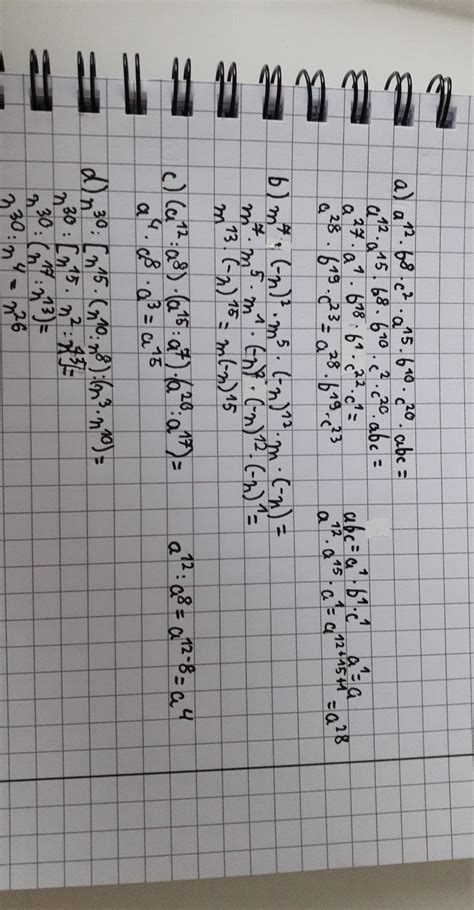 a) a¹² · b⁸ · c² · a¹⁵ · b¹⁰ · c²⁰ · abc =
a¹² · a¹⁵ · b⁸ · b¹⁰ · c² · c²⁰ · abc =
a²⁷ · a¹ · b¹⁸ · b¹ · c²² · c¹ =
a²⁸ · b¹⁹ · c²³ = a²⁸ · b¹⁹ · c²³
abc = a¹ · b¹ · c¹ a¹ = a
a¹² · a¹⁵ · a¹ = a¹²⁺¹⁵⁺¹ = a²⁸
b) m⁷ · (-n)² · m⁵ · (-n)¹² · m · (-n) =
m⁷ · m⁵ · m¹ · (-n)² · (-n)¹² · (-n)¹ =
m¹³ · (-n)¹⁵ = m(-n)¹⁵
c) (a¹² : a⁸) · (a¹⁵ : a⁷) · (a²⁰ : a¹⁷) =
a⁴ · a⁸ · a³ = a¹⁵
a¹² : a⁸ = a¹²⁻⁸ = a⁴
d) n³⁰ : [n¹⁵ · (n¹⁰ : n⁸) : (n³ · n¹⁰) =
n³⁰ : [n¹⁵ · n² : n¹³] =
n³⁰ : (n¹⁷ : n¹³) =
n³⁰ : n⁴ = n²⁶